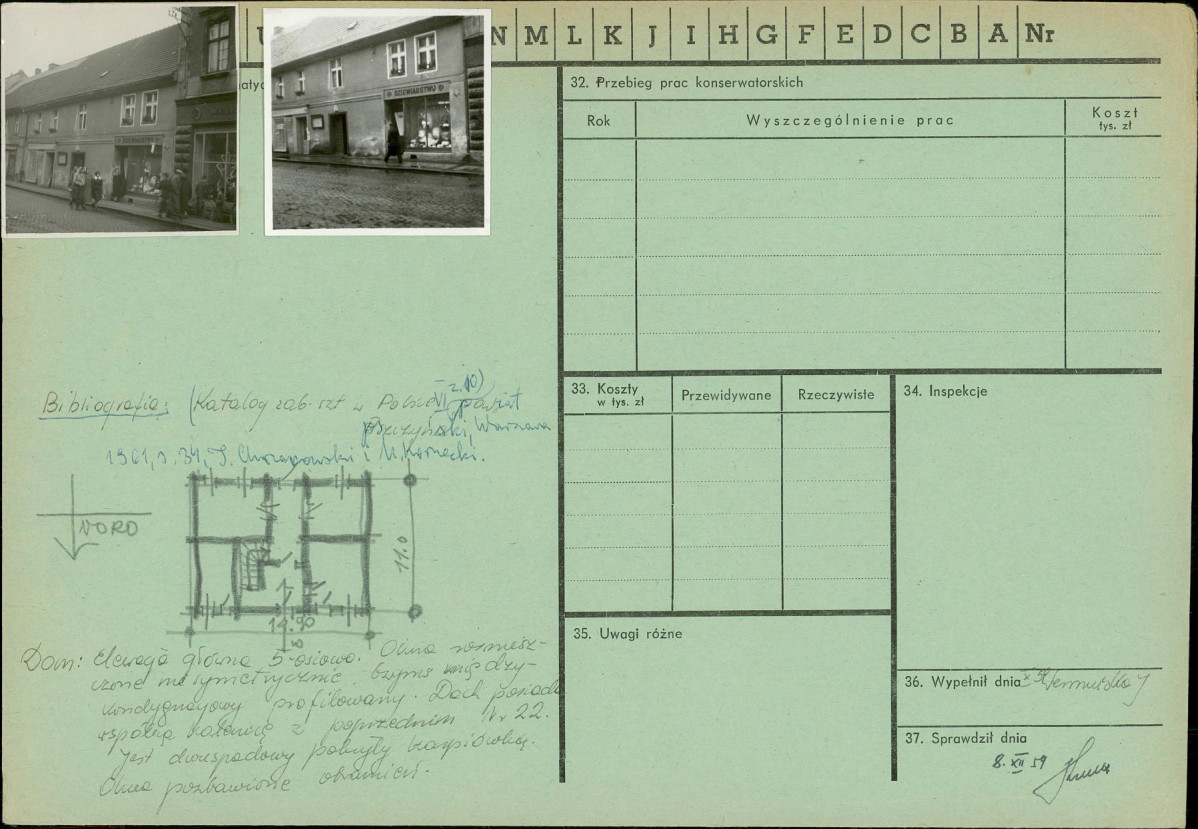 N M L K J I H G F E D C B A Nr
DZIEWIARSTWO
32. Przebieg prac konserwatorskich
Rok
Wyszczególnienie prac
Koszt
tys. zł
33. Koszty
w tys. zł
Przewidywane
Rzeczywiste
34. Inspekcje
35. Uwagi różne
36. Wypełnił dnia
37. Sprawdził dnia
8. XII 59
Bibliografia: (Katalog zab. szt. w Polsce VI z. 10) powiat
pszczyński, Warszawa
1961, s. 34, I. Chrzanowski i M. Kornecki.
NORD
11.0
14.90
Dom: Elewacja główna 5-osiowa. Okna rozmiesz-
czone niesymetrycznie. Gzyms między-
kondygnacyjowy profilowany. Dach posiada
wspólną kalenicę z poprzednim Nr 22.
Jest dwuspadowy pokryty karpiówką.
Okna pozbawione obramień.